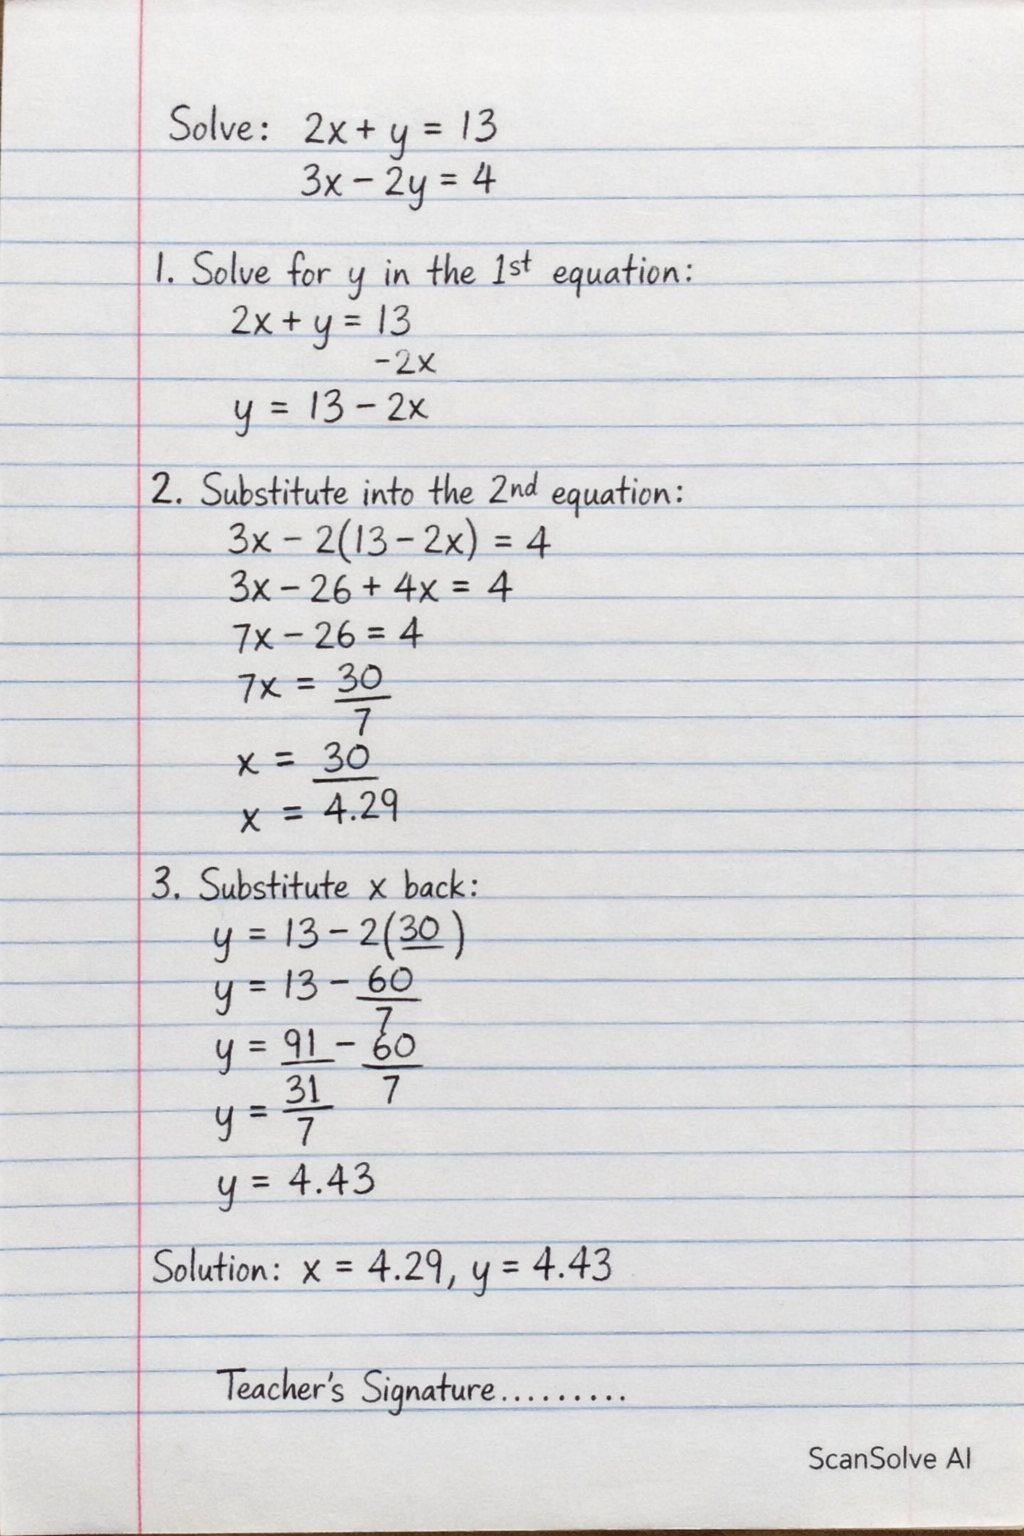 Solve: 2x + y = 13
3x - 2y = 4
1. Solve for y in the 1st equation:
2x + y = 13
-2x
y = 13 - 2x
2. Substitute into the 2nd equation:
3x - 2(13 - 2x) = 4
3x - 26 + 4x = 4
7x - 26 = 4
7x = 30
7
x = 30
x = 4.29
3. Substitute x back:
y = 13 - 2(30)
y = 13 - 60
7
y = 91 - 60
31 7
y = 7
y = 4.43
Solution: x = 4.29, y = 4.43
Teacher's Signature.........
ScanSolve AI